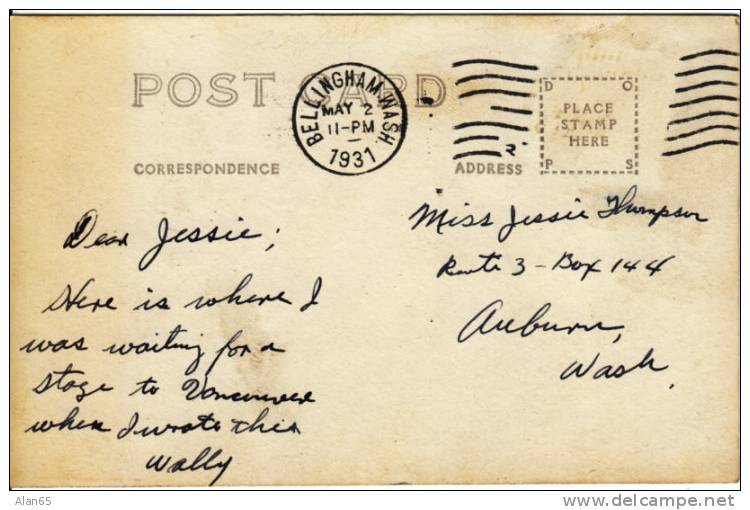 POST CARD
BELLINGHAM, WASH.
MAY 2
11-PM
1931
D O
PLACE
STAMP
HERE
P S
CORRESPONDENCE
ADDRESS
Dear Jessie;
Here is where I
was waiting for a
stage to Vancouver
when I wrote this
Wally
Miss Jessie Thompson
Route 3 - Box 144
Auburn,
Wash.
Alan65
delcampe.net